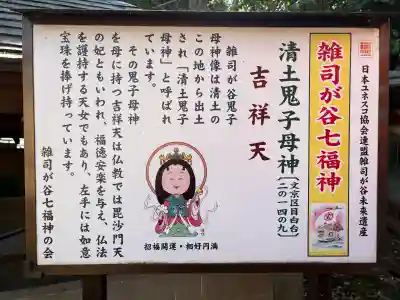 日本ユネスコ協会連盟雑司が谷未来遺産
雑司が谷七福神
清土鬼子母神
〔文京区目白台
二の一四の九〕
吉祥天
雑司が谷鬼子
母神像は清土の
この地から出土
され「清土鬼子
母神」と呼ばれ
ています。
その鬼子母神
を母に持つ吉祥天は仏教では毘沙門天
の妃ともいわれ、福徳安楽を与え、仏法
を護持する天女でもあり、左手には如意
宝珠を捧げ持っています。
雑司が谷七福神の会
招福開運・相好円満